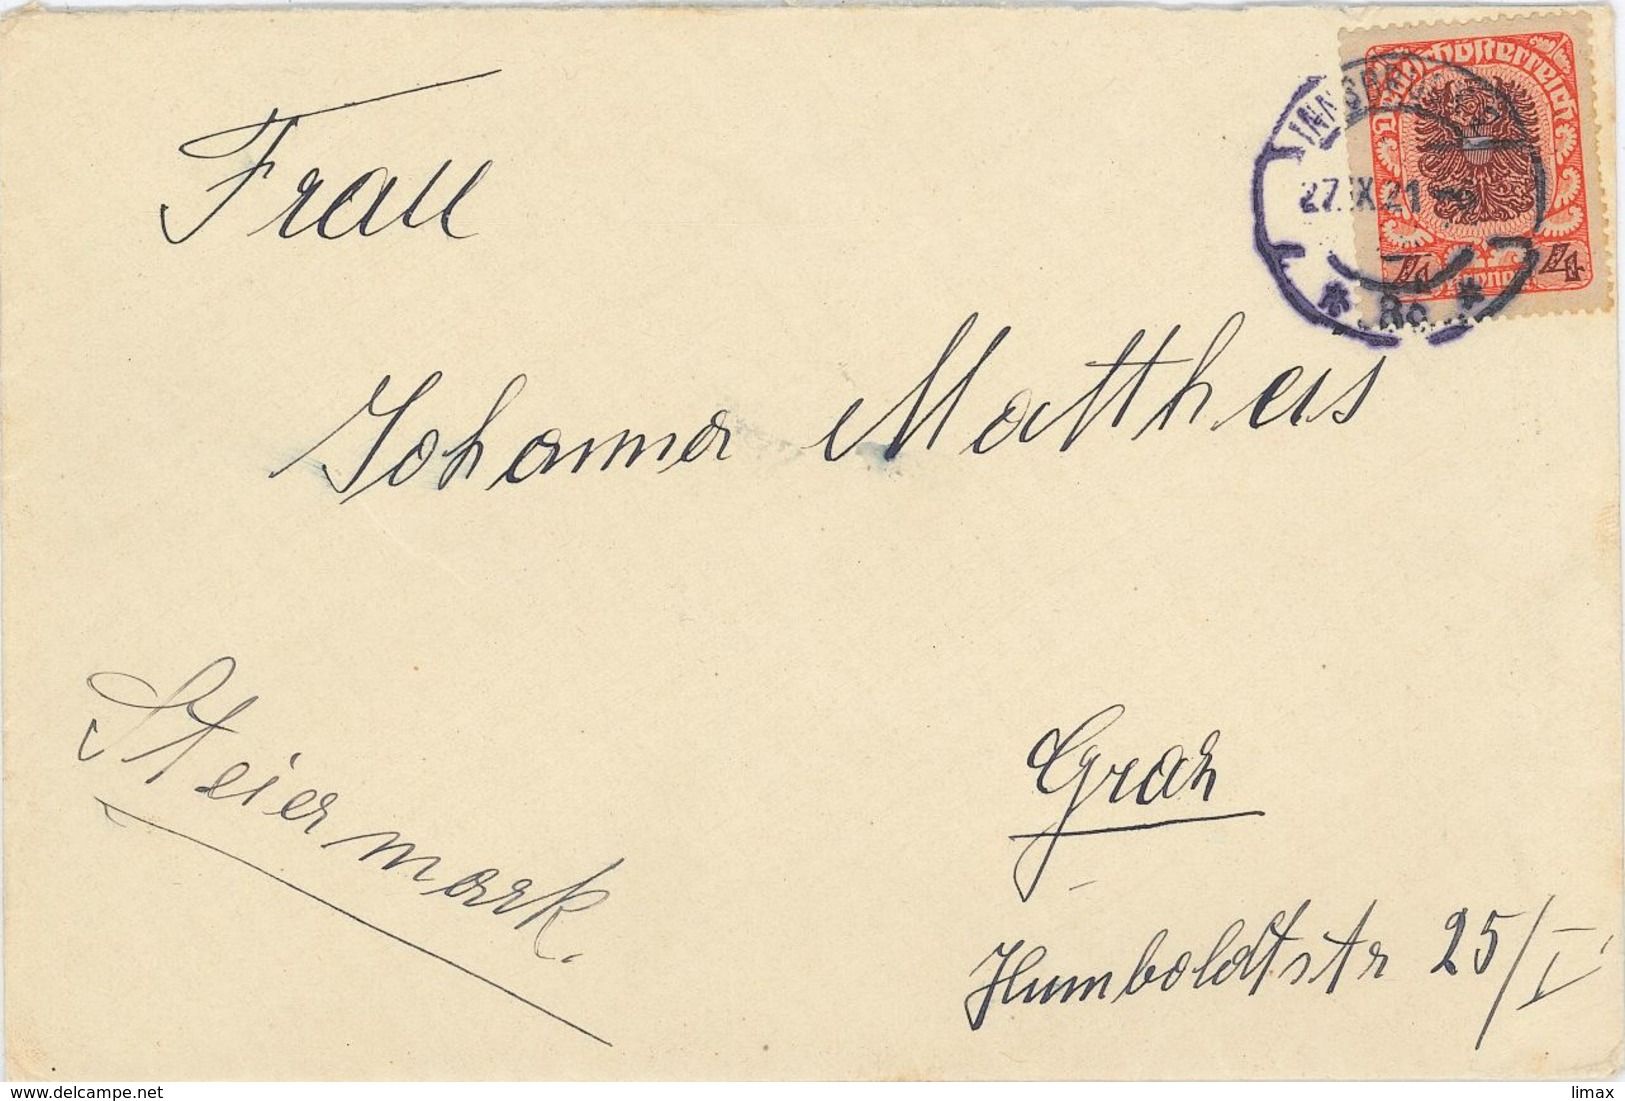 Deutschösterreich
INNSBRUCK
27.IX.21
* 8c *
4 Kronen 4
Frau
Johanna Mattheis
Steiermark.
Graz
Humboldtstr 25/I
delcampe.net
limax